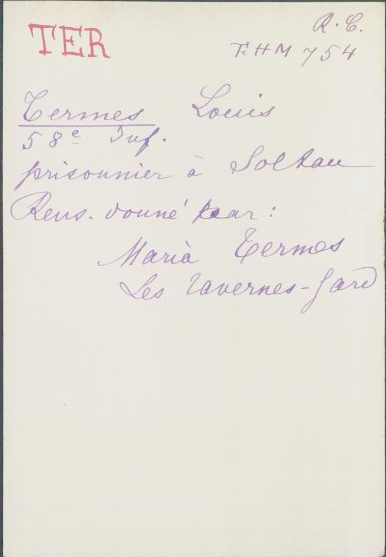 TER
R.C.
T.HM 754
Termes Louis
58e Inf.
prisonnier à Soltau
Rens. donné par :
Maria Termes
Les Tavernes-Gard